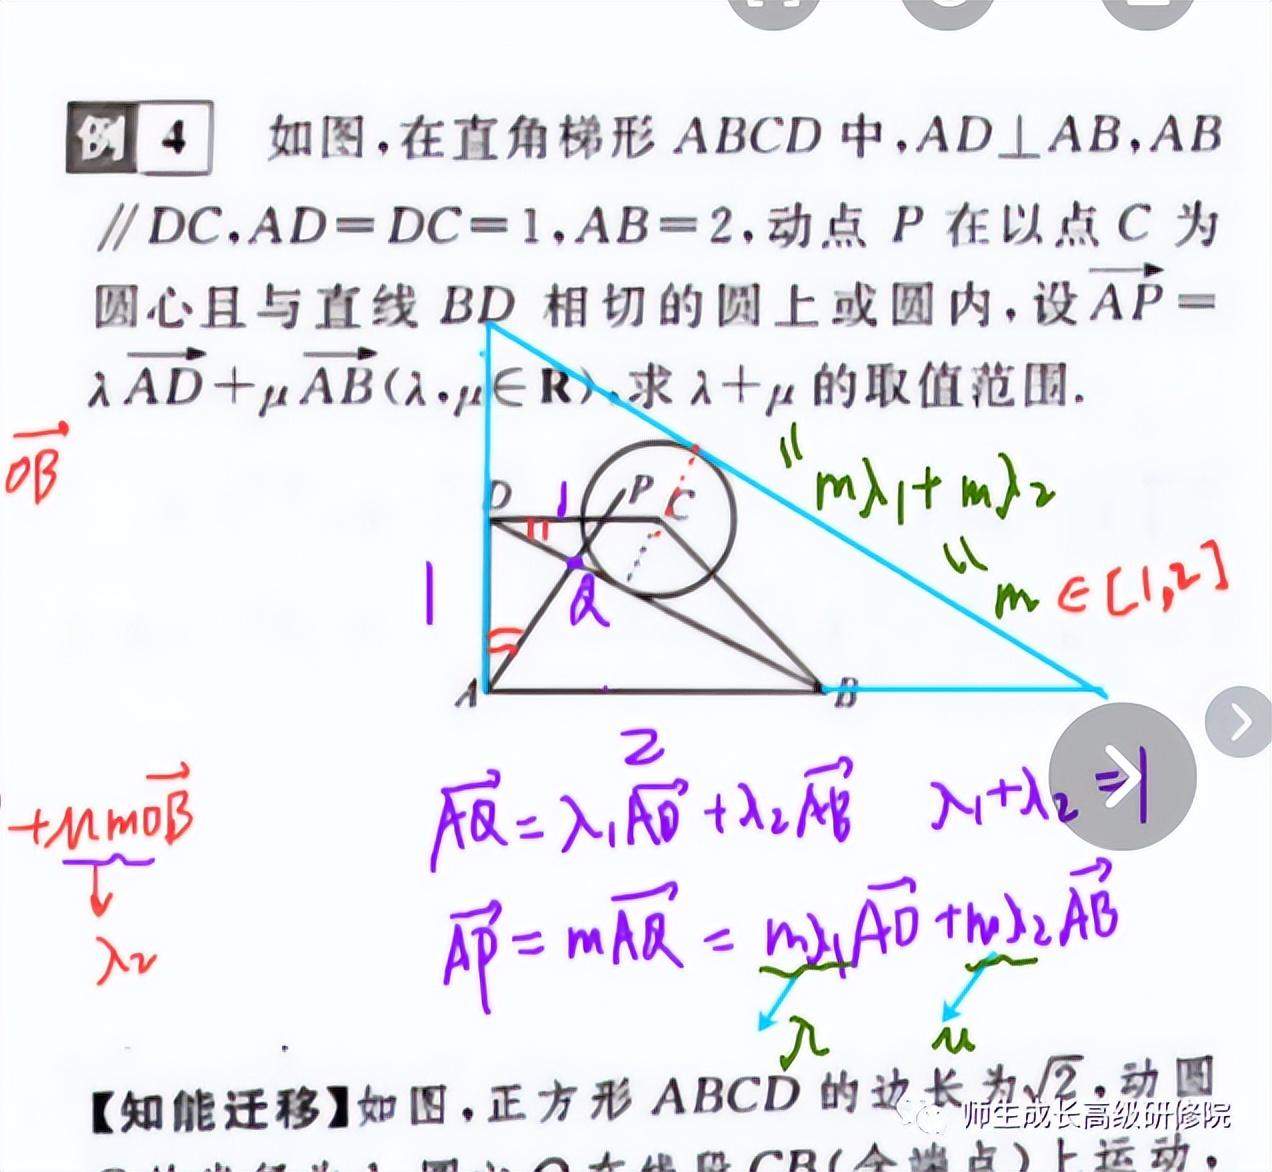 例 4 如图,在直角梯形 ABCD 中,AD⊥AB,AB
∥DC,AD=DC=1,AB=2,动点 P 在以点 C 为
圆心且与直线 BD 相切的圆上或圆内,设$\overrightarrow{AP}$=
λ$\overrightarrow{AD}$+μ$\overrightarrow{AB}$(λ,μ∈R),求 λ+μ 的取值范围.
$\overrightarrow{OB}$
"
mλ₁+mλ₂
"
m ∈[1,2]
D 1 P C
1 Q
A B
2
+μm$\overrightarrow{OB}$
λ₂
$\overrightarrow{AQ}$=λ₁$\overrightarrow{AD}$+λ₂$\overrightarrow{AB}$ λ₁+λ₂=1
$\overrightarrow{AP}$=m$\overrightarrow{AQ}$=mλ₁$\overrightarrow{AD}$+mλ₂$\overrightarrow{AB}$
λ μ
【知能迁移】如图,正方形 ABCD 的边长为√2,动圆
师生成长高级研修院